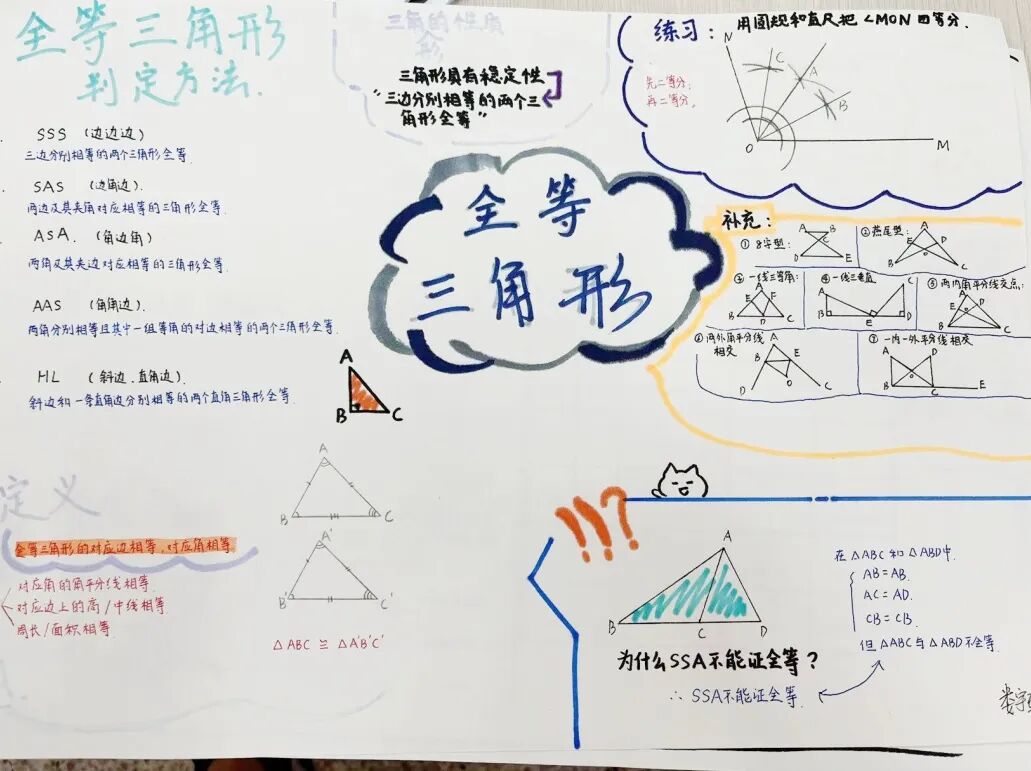 全等三角形
判定方法.
SSS (边边边)
三边分别相等的两个三角形全等
SAS (边角边).
两边及其夹角对应相等的三角形全等.
ASA. (角边角)
两角及其夹边对应相等的三角形全等.
AAS (角角边)
两角分别相等且其中一组等角的对边相等的两个三角形全等.
HL (斜边.直角边).
斜边和一条直角边分别相等的两个直角三角形全等.
A
B
C
定义
全等三角形的对应边相等,对应角相等
对应角的角平分线相等.
对应边上的高/中线相等.
周长/面积相等.
A
B
C
A'
B'
C'
△ABC ≌ △A'B'C'
三角的性质
三角形具有稳定性
"三边分别相等的两个三
角形全等"
全等
三角形
练习:
用圆规和直尺把∠MON四等分.
先二等分,
再二等分.
N
C
A
B
O
M
补充:
①8字型:
A
B
C
D
E
②燕尾型:
A
E
D
B
C
③一线三等角:
A
E
F
B
D
C
④一线三垂直
A
B
E
D
C
⑤两内角平分线交点:
A
E
D
B
C
⑥两外角平分线
相交
A
B
E
D
O
C
⑦一内一外平分线相交
A
D
O
B
C
E
!!!?
A
B
C
D
为什么SSA不能证全等?
∴SSA不能证全等.
在△ABC和△ABD中.
AB=AB.
AC=AD.
CB=CB.
但△ABC与△ABD不全等.
娄宇